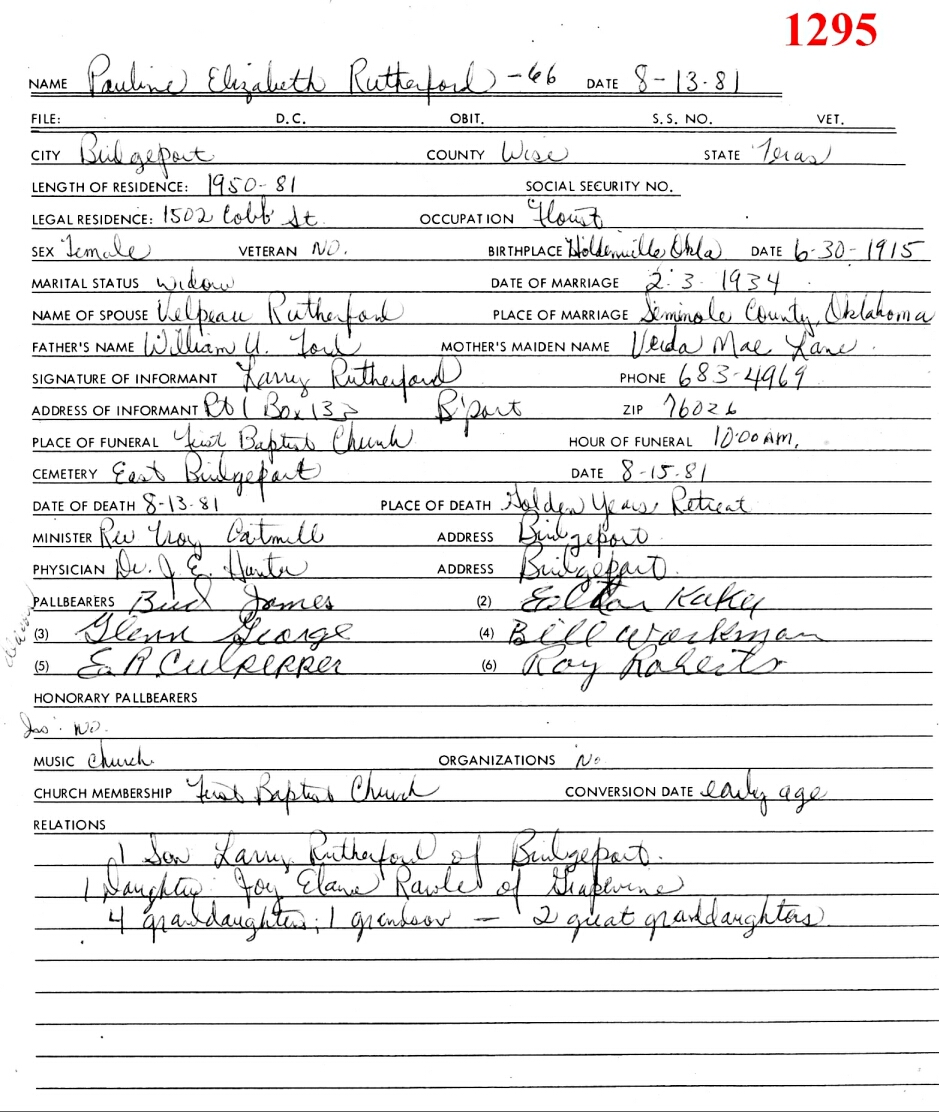 1295
NAME Pauline Elizabeth Rutherford - 66 DATE 8-13-81
FILE: D.C. OBIT. S.S. NO. VET.
CITY Bridgeport COUNTY Wise STATE Texas
LENGTH OF RESIDENCE: 1950-81 SOCIAL SECURITY NO.
LEGAL RESIDENCE: 1502 Cobb St. OCCUPATION Florist
SEX Female VETERAN NO. BIRTHPLACE Holdenville, Okla DATE 6-30-1915
MARITAL STATUS widow DATE OF MARRIAGE 2-3-1934
NAME OF SPOUSE Velpeau Rutherford PLACE OF MARRIAGE Seminole County, Oklahoma
FATHER'S NAME William U. Ford MOTHER'S MAIDEN NAME Verda Mae Lane.
SIGNATURE OF INFORMANT Larry Rutherford PHONE 683-4969
ADDRESS OF INFORMANT Rt 1 Box B'port ZIP 76026
PLACE OF FUNERAL First Baptist Church HOUR OF FUNERAL 10:00 AM.
CEMETERY East Bridgeport DATE 8-15-81
DATE OF DEATH 8-13-81 PLACE OF DEATH Golden Years Retreat
MINISTER Rev Troy ADDRESS Bridgeport
PHYSICIAN Dr. J. E. Hunter ADDRESS Bridgeport.
PALLBEARERS Bud James (2)
(3) Glenn George (4) Bill Workman
(5) E. R. Culpepper (6) Roy Roberts
HONORARY PALLBEARERS
NO.
MUSIC Church. ORGANIZATIONS No
CHURCH MEMBERSHIP First Baptist Church CONVERSION DATE early age
RELATIONS
1 Son Larry Rutherford of Bridgeport.
1 Daughter Joy Elane of Grapevine
4 granddaughters; 1 grandson — 2 great granddaughters